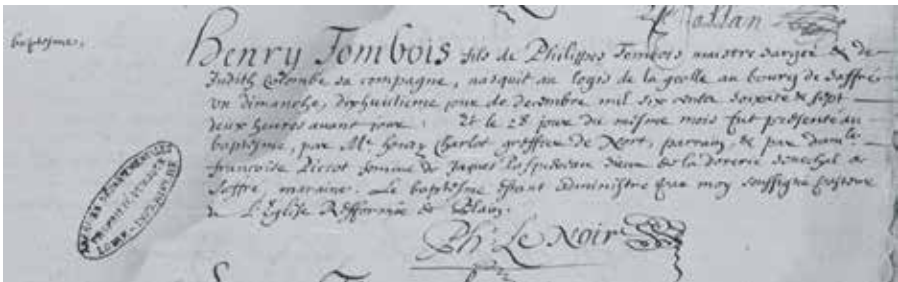 baptesme,
Henry Fombois fils de Philippes Fombois maistre sarger & de
Judith Colombe sa compagne, nasquit au logis de la geolle au bourg de saffré
un dimanche, dixhuitieme jour de decembre mil six cents soixate & sept
deux heures avant jour. Et le 28 jour du mesme mois fut presenté au
baptesme, par Me Henry Charlot greffier de Nort, parrain, & par damlle
francoise femme de Jaques sieur de la senechal de
Saffré, maraine. Le baptesme estant administré par moy soussigné pasteur
de L'Eglise Refformée de Blain.
Ph. Le Noir
ARCHIVES DÉPARTEMENTALES